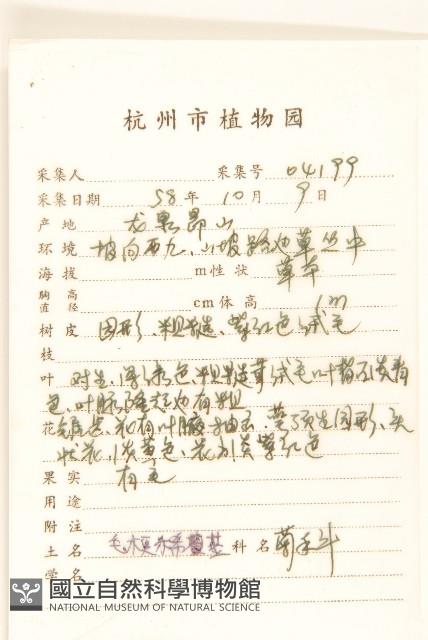 杭州市植物园
采集人 采集号 04199
采集日期 58年10月9日
产地 龙泉昴山
环境 坡向西九、山坡路边草丛中
海拔 m性状 草本
胸高直径 cm体高 1m
树皮 圆形、粗糙、紫红色绒毛
枝
叶 对生、深绿色、粗糙有绒毛叶背面淡
色、叶脉隆起边有粗
花 锯齿、花有叶腋抽出、茎顶生圆形、头
状花、淡黄色、花 紫红色
果实 有毛
用途
附注
土名 毛梗豨薟 科名 菊禾斗
学名
國立自然科學博物館
NATIONAL MUSEUM OF NATURAL SCIENCE